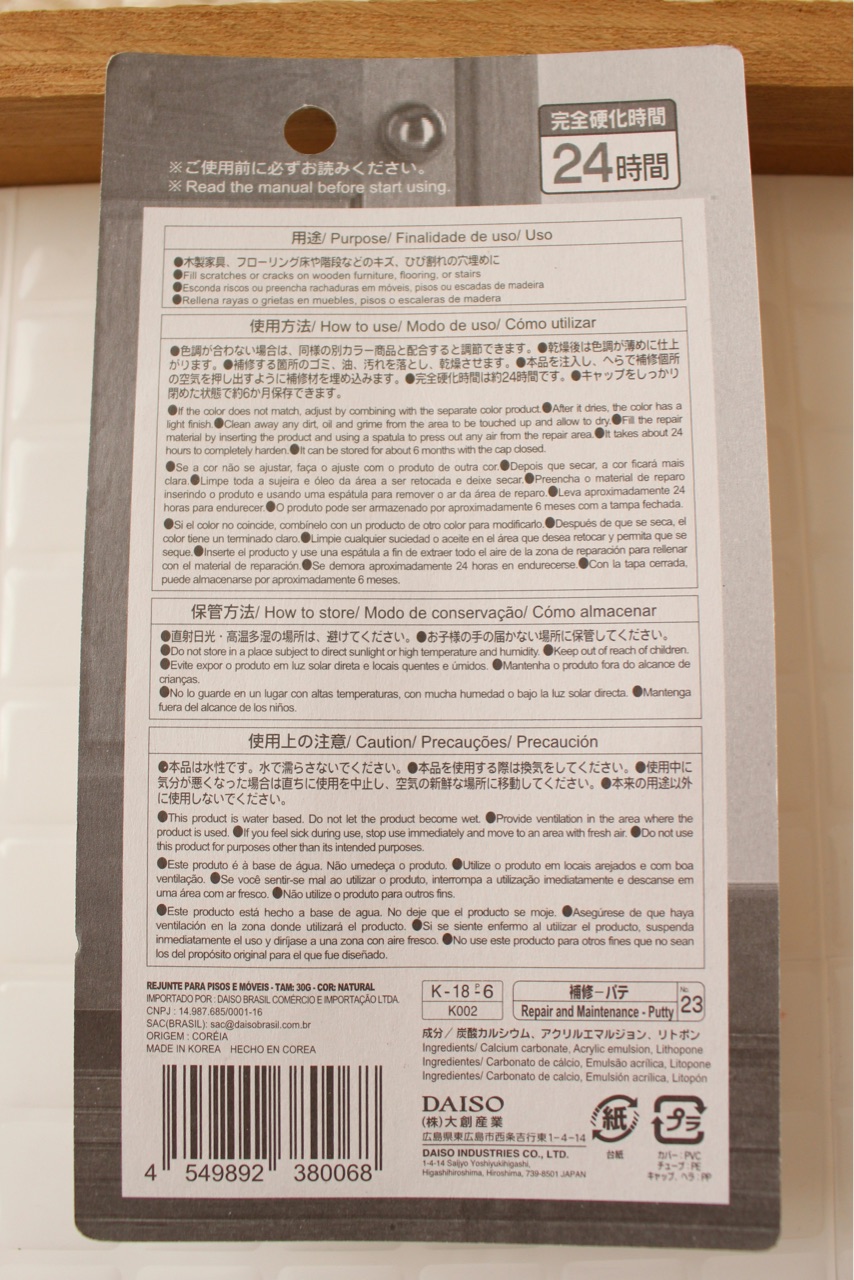 ※ご使用前に必ずお読みください。
※ Read the manual before start using.
完全硬化時間
24時間
用途/ Purpose/ Finalidade de uso/ Uso
●木製家具、フローリング床や階段などのキズ、ひび割れの穴埋めに
●Fill scratches or cracks on wooden furniture, flooring, or stairs
●Esconda riscos ou preencha rachaduras em móveis, pisos ou escadas de madeira
●Rellena rayas o grietas en muebles, pisos o escaleras de madera
使用方法/ How to use/ Modo de uso/ Cómo utilizar
●色調が合わない場合は、同様の別カラー商品と配合すると調節できます。●乾燥後は色調が薄めに仕上
がります。●補修する箇所のゴミ、油、汚れを落とし、乾燥させます。●本品を注入し、へらで補修個所
の空気を押し出すように補修材を埋め込みます。●完全硬化時間は約24時間です。●キャップをしっかり
閉めた状態で約6か月保存できます。
●If the color does not match, adjust by combining with the separate color product.●After it dries, the color has a
light finish.●Clean away any dirt, oil and grime from the area to be touched up and allow to dry.●Fill the repair
material by inserting the product and using a spatula to press out any air from the repair area.●It takes about 24
hours to completely harden.●It can be stored for about 6 months with the cap closed.
●Se a cor não se ajustar, faça o ajuste com o produto de outra cor.●Depois que secar, a cor ficará mais
clara.●Limpe toda a sujeira e óleo da área a ser retocada e deixe secar.●Preencha o material de reparo
inserindo o produto e usando uma espátula para remover o ar da área de reparo.●Leva aproximadamente 24
horas para endurecer.●O produto pode ser armazenado por aproximadamente 6 meses com a tampa fechada.
●Si el color no coincide, combínelo con un producto de otro color para modificarlo.●Después de que se seca, el
color tiene un terminado claro.●Limpie cualquier suciedad o aceite en el área que desea retocar y permita que se
seque.●Inserte el producto y use una espátula a fin de extraer todo el aire de la zona de reparación para rellenar
con el material de reparación.●Se demora aproximadamente 24 horas en endurecerse.●Con la tapa cerrada,
puede almacenarse por aproximadamente 6 meses.
保管方法/ How to store/ Modo de conservação/ Cómo almacenar
●直射日光・高温多湿の場所は、避けてください。●お子様の手の届かない場所に保管してください。
●Do not store in a place subject to direct sunlight or high temperature and humidity. ●Keep out of reach of children.
●Evite expor o produto em luz solar direta e locais quentes e úmidos. ●Mantenha o produto fora do alcance de
crianças.
●No lo guarde en un lugar con altas temperaturas, con mucha humedad o bajo la luz solar directa. ●Mantenga
fuera del alcance de los niños.
使用上の注意/ Caution/ Precauções/ Precaución
●本品は水性です。水で濡らさないでください。●本品を使用する際は換気をしてください。●使用中に
気分が悪くなった場合は直ちに使用を中止し、空気の新鮮な場所に移動してください。●本来の用途以外
に使用しないでください。
●This product is water based. Do not let the product become wet. ●Provide ventilation in the area where the
product is used. ●If you feel sick during use, stop use immediately and move to an area with fresh air. ●Do not use
this product for purposes other than its intended purposes.
●Este produto é à base de água. Não umedeça o produto. ●Utilize o produto em locais arejados e com boa
ventilação. ●Se você sentir-se mal ao utilizar o produto, interrompa a utilização imediatamente e descanse em
uma área com ar fresco. ●Não utilize o produto para outros fins.
●Este producto está hecho a base de agua. No deje que el producto se moje. ●Asegúrese de que haya
ventilación en la zona donde utilizará el producto. ●Si se siente enfermo al utilizar el producto, suspenda
inmediatamente el uso y diríjase a una zona con aire fresco. ●No use este producto para otros fines que no sean
los del propósito original para el que fue diseñado.
REJUNTE PARA PISOS E MÓVEIS - TAM: 30G - COR: NATURAL
IMPORTADO POR : DAISO BRASIL COMÉRCIO E IMPORTAÇÃO LTDA.
CNPJ : 14.987.685/0001-16
SAC(BRASIL): sac@daisobrasil.com.br
ORIGEM : CORÉIA
MADE IN KOREA HECHO EN COREA
4 549892 380068
K-18 P-6
K002
補修－パテ
Repair and Maintenance - Putty
No. 23
成分／炭酸カルシウム、アクリルエマルジョン、リトポン
Ingredients/ Calcium carbonate, Acrylic emulsion, Lithopone
Ingredientes/ Carbonato de cálcio, Emulsão acrílica, Litopone
Ingredientes/ Carbonato de calcio, Emulsión acrílica, Litopón
DAISO
(株)大創産業
広島県東広島市西条吉行東1-4-14
DAISO INDUSTRIES CO., LTD.
1-4-14 Saijyo Yoshiyukihigashi,
Higashihiroshima, Hiroshima, 739-8501 JAPAN
紙
台紙
プラ
カバー：PVC
チューブ：PE
キャップ、ヘラ：PP